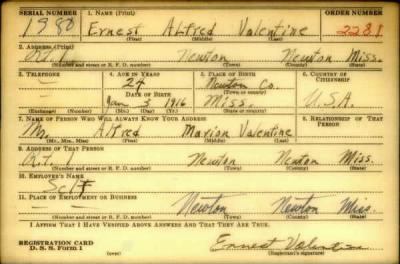 SERIAL NUMBER 1. NAME (Print) ORDER NUMBER
1980 Ernest Alfred Valentine 2281
(First) (Middle) (Last)
2. ADDRESS (Print)
Rt. 1 Newton Newton Miss.
(Number and street or R. F. D. number) (Town) (County) (State)
3. TELEPHONE 4. AGE IN YEARS 5. PLACE OF BIRTH 6. COUNTRY OF CITIZENSHIP
24 Newton Co.
DATE OF BIRTH
Jan 3 1916 Miss. U.S.A.
(Exchange) (Number) (Mo.) (Day) (Yr.)
7. NAME OF PERSON WHO WILL ALWAYS KNOW YOUR ADDRESS 8. RELATIONSHIP OF THAT PERSON
Mr. Alfred Marion Valentine
(Mr., Mrs., Miss) (First) (Middle) (Last)
9. ADDRESS OF THAT PERSON
Rt. 1 Newton Newton Miss.
(Number and street or R. F. D. number) (Town) (County) (State)
10. EMPLOYER'S NAME
Self
11. PLACE OF EMPLOYMENT OR BUSINESS
Newton Newton Miss.
(Number and street or R. F. D. number) (Town) (County) (State)
I AFFIRM THAT I HAVE VERIFIED ABOVE ANSWERS AND THAT THEY ARE TRUE.
REGISTRATION CARD
D. S. S. Form 1 (over) Ernest Valentine
(Registrant's signature)